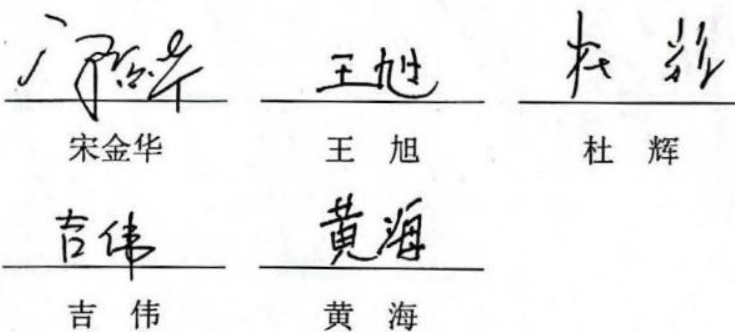 王旭 杜辉
宋金华 王 旭 杜 辉
吉伟 黄海
吉 伟 黄 海